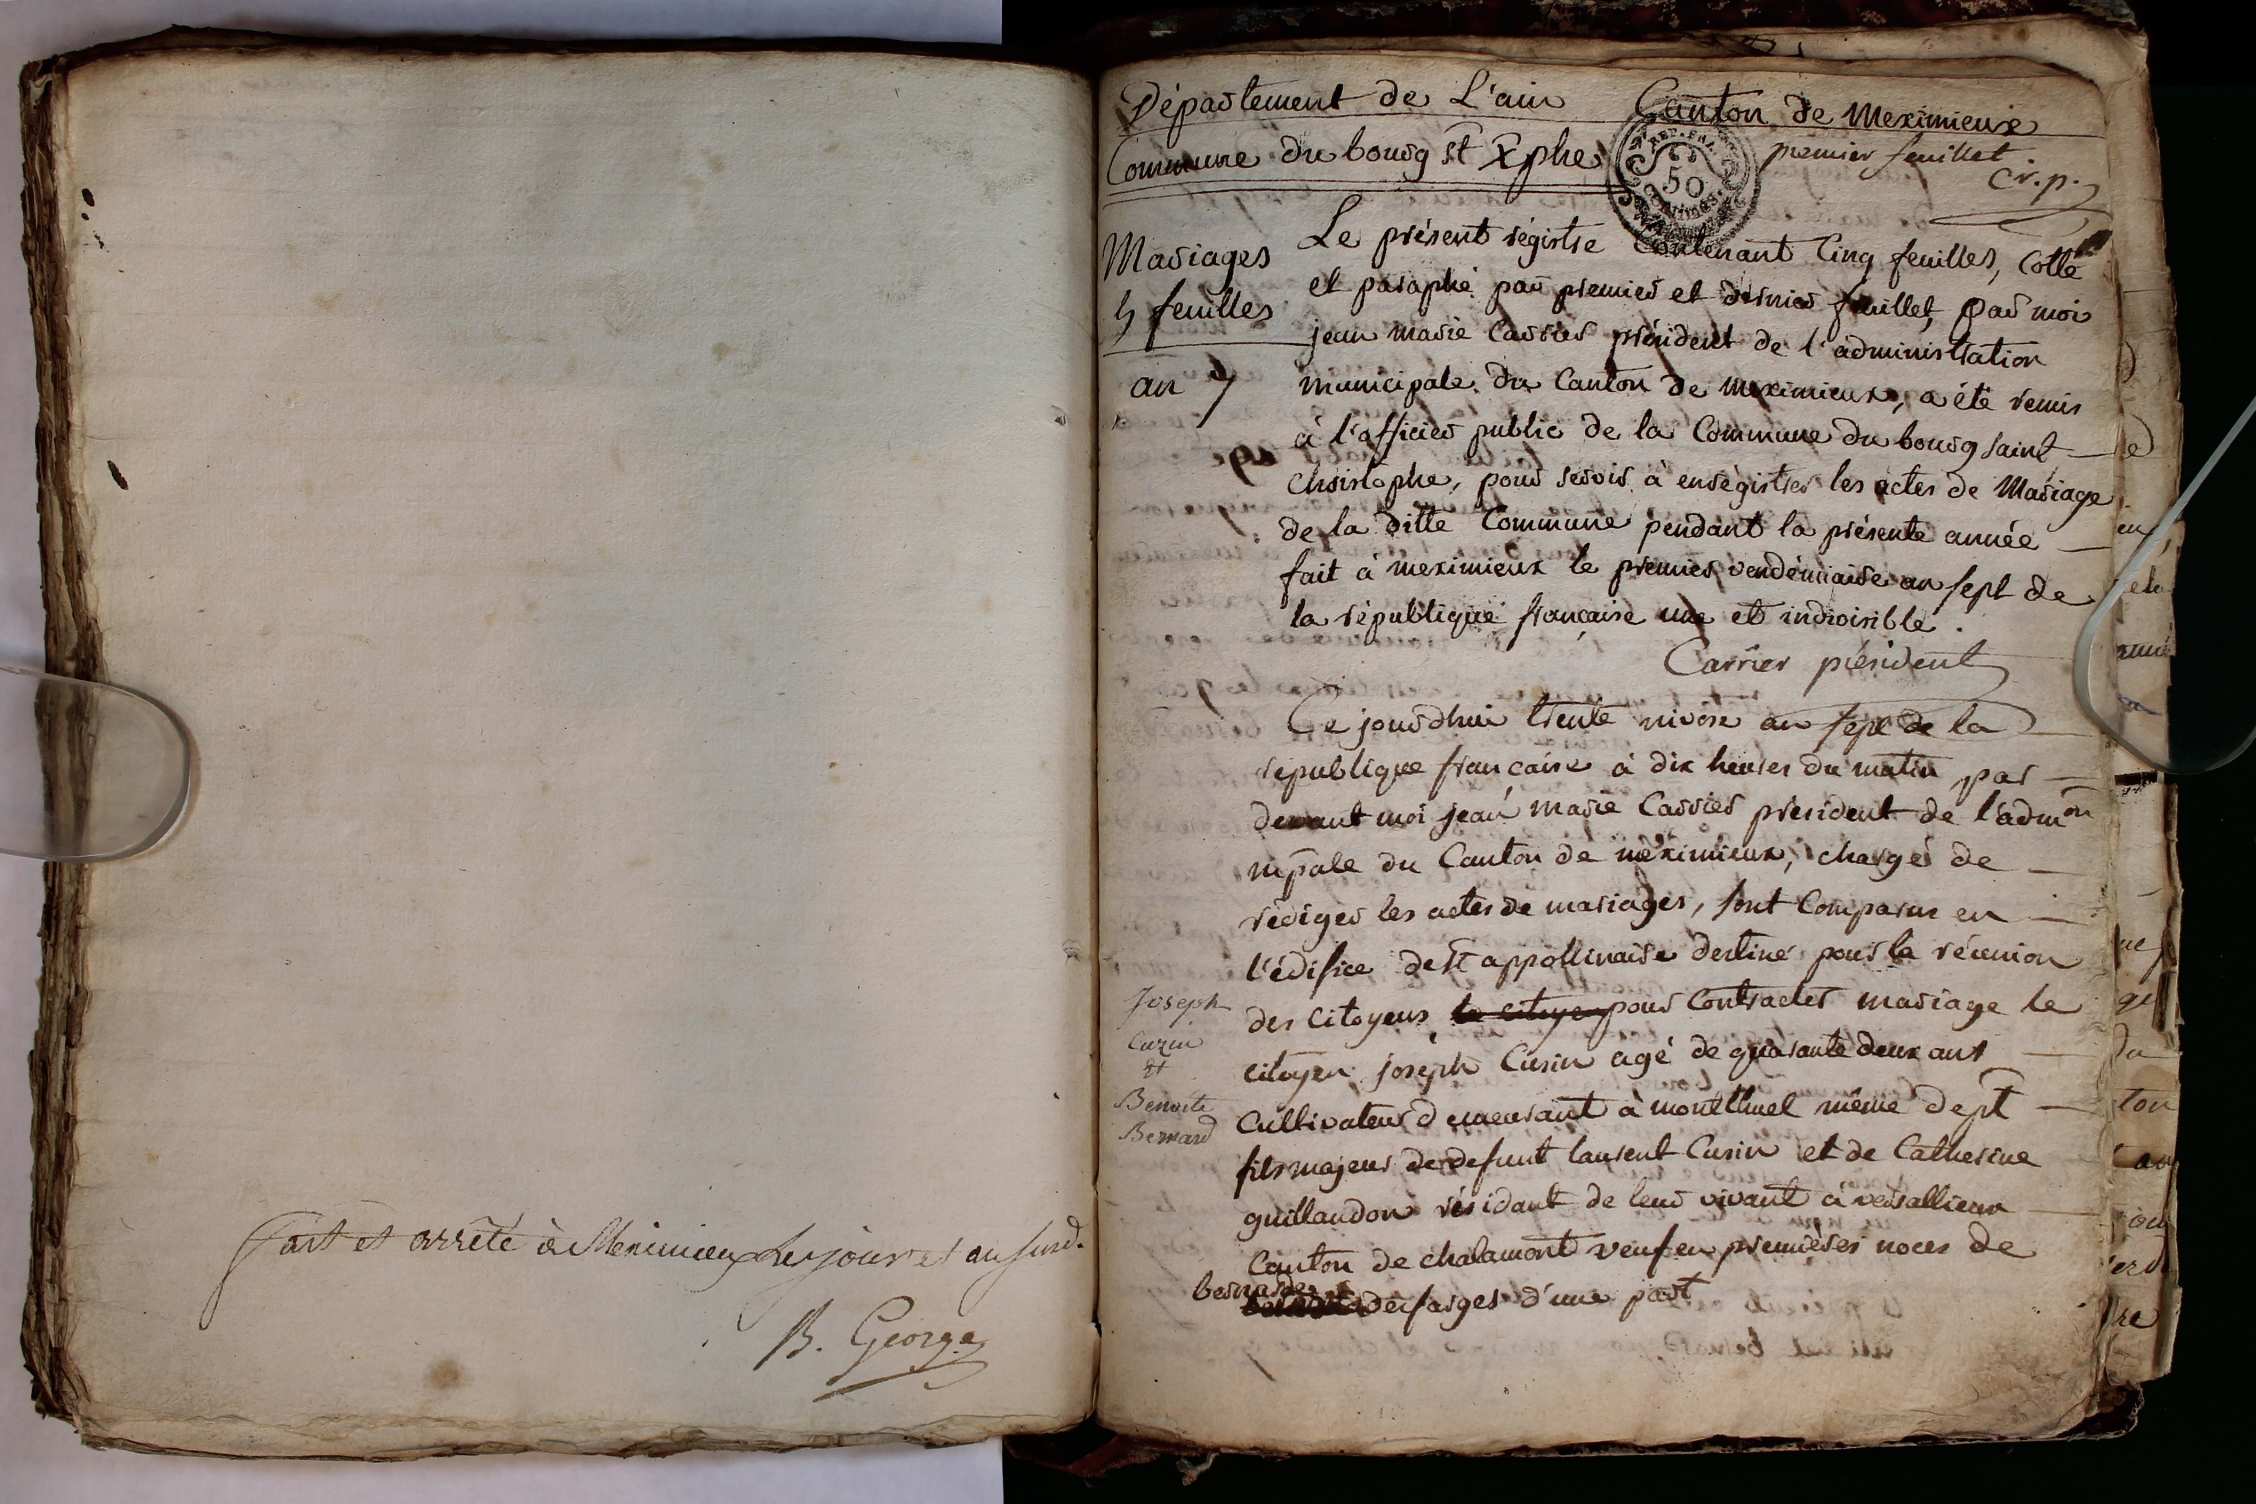 fait et arrêté à Meximieux les jour et an susd.
B. George
Département de L'ain Canton de Meximieux
Commune du bourg st Xphe
premier feuillet.
cr. p.
REP. FRA.
50
CENTIMES
Mariages
5 feuilles
an 7
Le présent régistre contenant Cinq feuilles, Cotté
et paraphé par premier et dernier feuillet, par moi
jean marie Carrier président de l'administration
municipale du Canton de meximieux, a été remis
à l'officier public de la Commune du bourg saint
christophe, pour servir à enrégistrer les actes de Mariage
de la ditte Commune pendant la présente année
fait à meximieux le premier vendémiaire an sept de
la république française une et indivisible.
Carrier président
Ce jourdhui trente nivose an sept de la
republique française à dix heures du matin par
devant moi jean marie Carrier president de l'admon
mpale du Canton de meximieux, chargé de
rédiger les actes de mariages, sont Comparus en
l'édifice de st appollinaire destiné pour la réunion
des citoyens le citoyen pour Contracter mariage le
citoyen joseph Cusin agé de quarante deux ans
Cultivateur demeurant à montluel même dept
fils majeur de defunt laurent Cusin et de Catherine
guillaudon résidant de leur vivant à versallieux
Canton de chalamont veuf en premieres noces de
bernarde
desfarges d'une part
Joseph
Cuzin
et
Benoite
Bernard